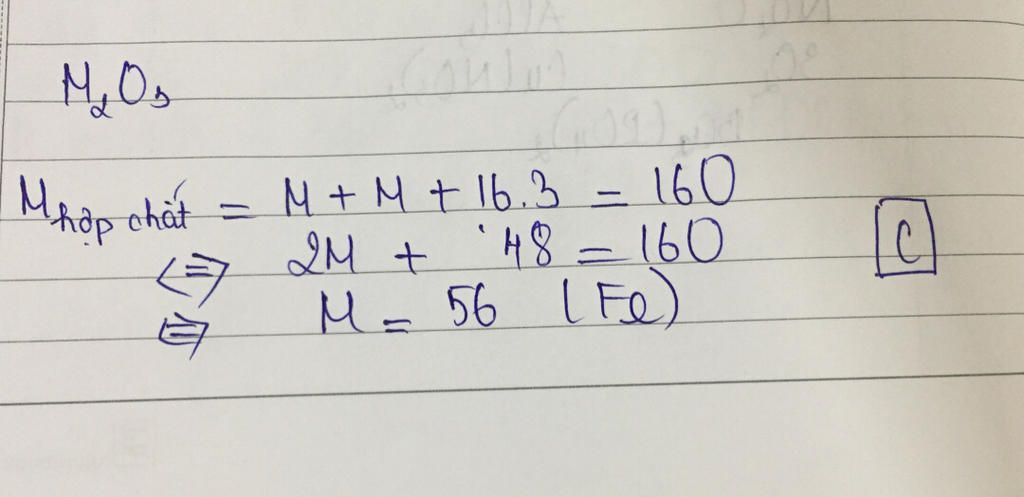 M₂O₃
M hợp chất = M + M + 16.3 = 160
<=> 2M + 48 = 160
C
=> M = 56 (Fe)